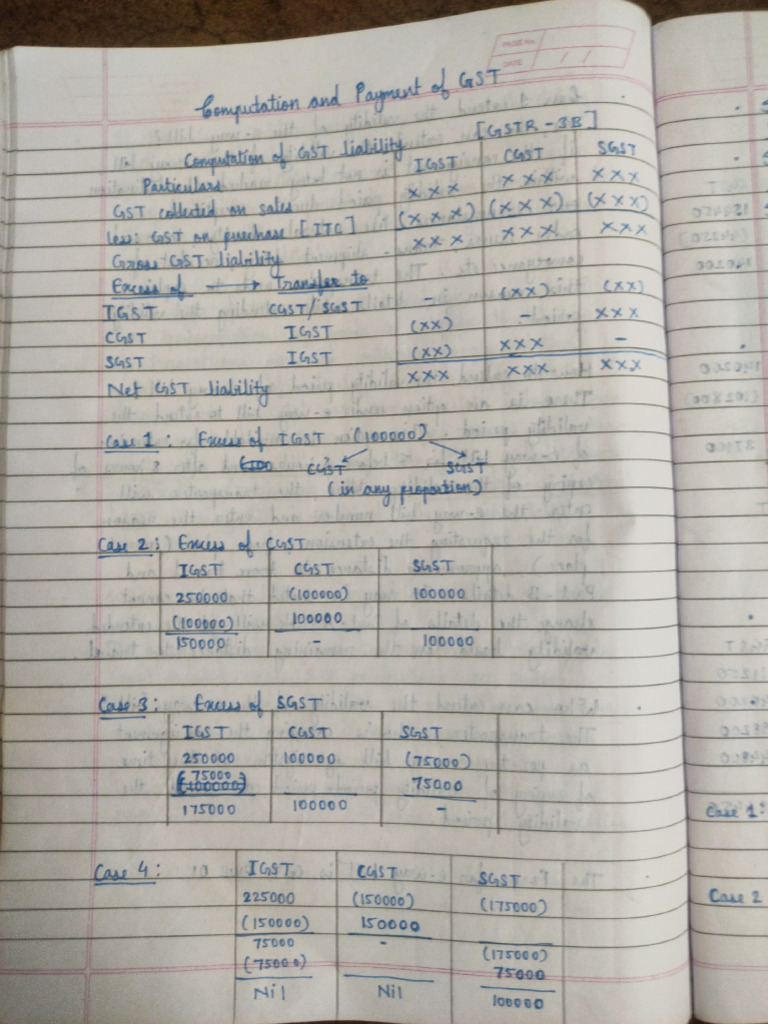 PAGE No.
DATE / /
Computation and Payment of GST
[GSTR-3B]
Computation of GST liability
Particulars IGST CGST SGST
GST collected on sales XXX XXX XXX
Less: GST on purchase [ITC] (XXX) (XXX) (XXX)
Gross GST liability XXX XXX XXX
Excess of → Transfer to
IGST CGST/SGST - (XX) (XX)
CGST IGST (XX) - XXX
SGST IGST (XX) XXX -
Net GST liability XXX XXX XXX
Case 1: Excess of IGST (100000)
CGST SGST
(in any proportion)
Case 2: Excess of CGST
IGST CGST SGST
250000 (100000) 100000
(100000) 100000
150000 - 100000
Case 3: Excess of SGST
IGST CGST SGST
250000 100000 (75000)
(75000) 75000
(100000)
175000 100000 -
Case 4: IGST CGST SGST
225000 (150000) (175000)
(150000) 150000
75000 - (175000)
(75000) 75000
Nil Nil 100000
Case 1:
Case 2